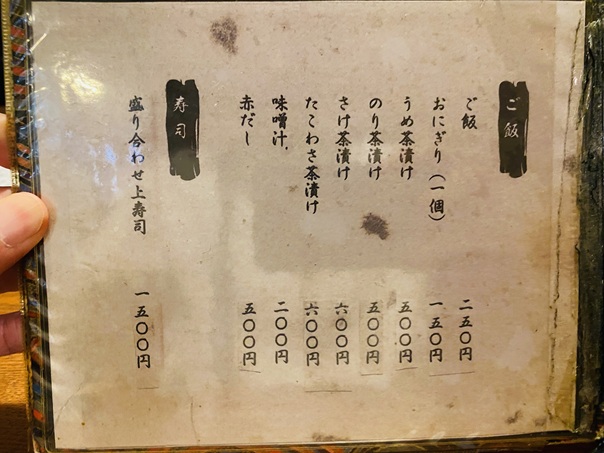 ご飯
ご飯 二五〇円
おにぎり（一個） 一五〇円
うめ茶漬け 五〇〇円
のり茶漬け 五〇〇円
さけ茶漬け 六〇〇円
たこわさ茶漬け 六〇〇円
味噌汁 二〇〇円
赤だし 五〇〇円
寿司
盛り合わせ上寿司 一五〇〇円